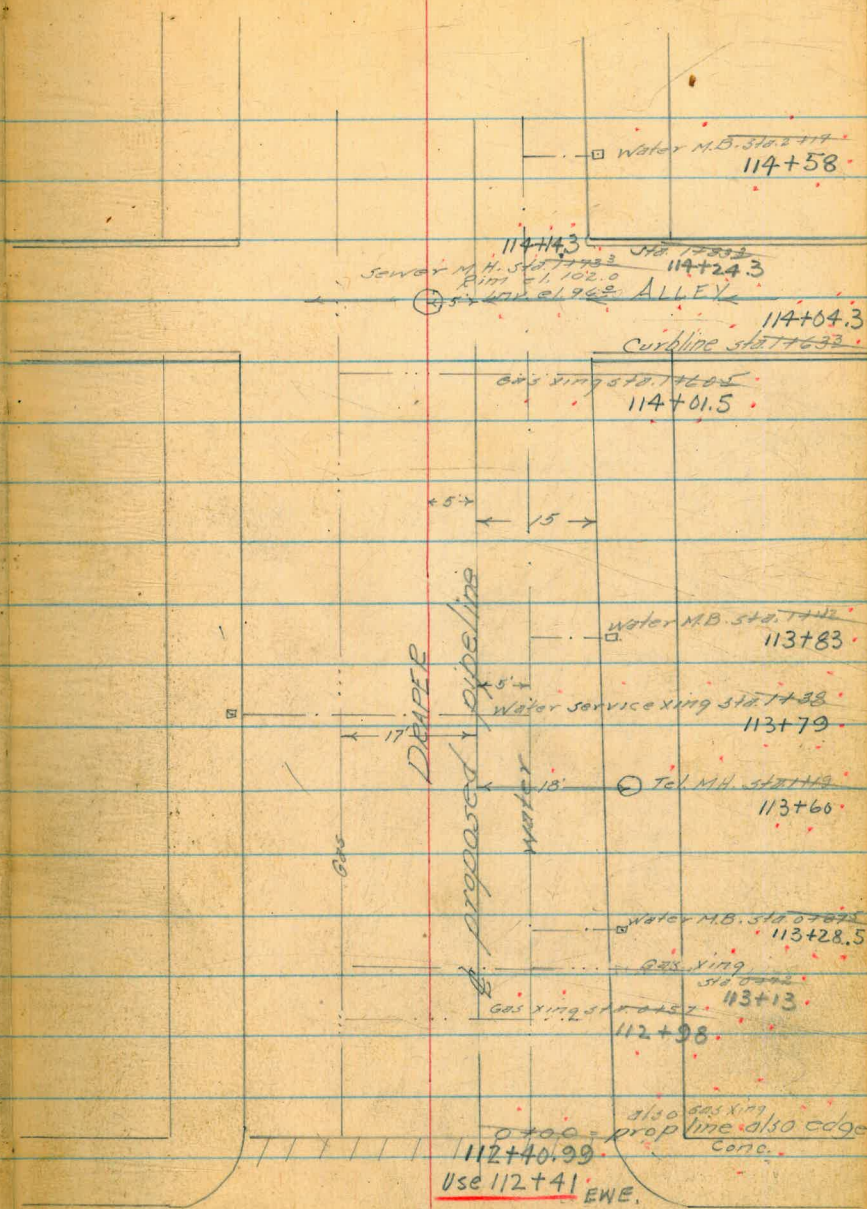 Water M.B. sta. 2+17
114+58
114+14.3
Sta. 1+83.3
114+24.3
Sewer M.H. sta. 1+73.3
Rim el. 102.0
Inv. el. 96.0
5'
ALLEY
114+04.3
Curbline sta. 1+63.3
Gas xing sta. 1+60.5
114+01.5
5'
15
Water M.B. sta. 1+42
113+83
5'
Water service xing sta. 1+38
113+79
17'
DRAPER
℄ proposed pipeline
Water
Gas
18'
Tel. M.H. sta 1+19
113+60
Water M.B. sta. 0+87.5
113+28.5
Gas xing
sta 0+72
113+13
Gas xing sta. 0+57
112+98
also gas xing
0+00 = prop line also edge
Conc.
112+40.99
Use 112+41
EWE.